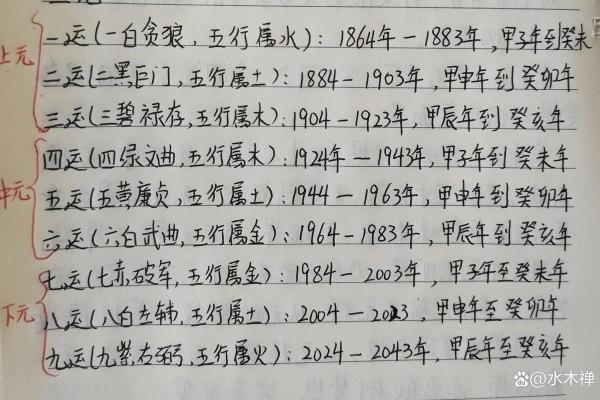 上元
一运(一白贪狼,五行属水):1864年-1883年,甲子年到癸未
二运(二黑巨门,五行属土):1884-1903年,甲申年到癸卯年
三运(三碧禄存,五行属木):1904-1923年,甲辰年到癸亥年
中元
四运(四绿文曲,五行属木):1924年-1943年,甲子年到癸未年
五运(五黄廉贞,五行属土):1944-1963年,甲申年到癸卯年
六运(六白武曲,五行属金):1964-1983年,甲辰年到癸亥年
下元
七运(七赤破军,五行属金):1984-2003年,甲子年至癸未年
八运(八白左辅,五行属土):2004-2023,甲申年至癸卯年
九运(九紫右弼,五行属火):2024-2043年,甲辰年至癸亥年
@水木禅